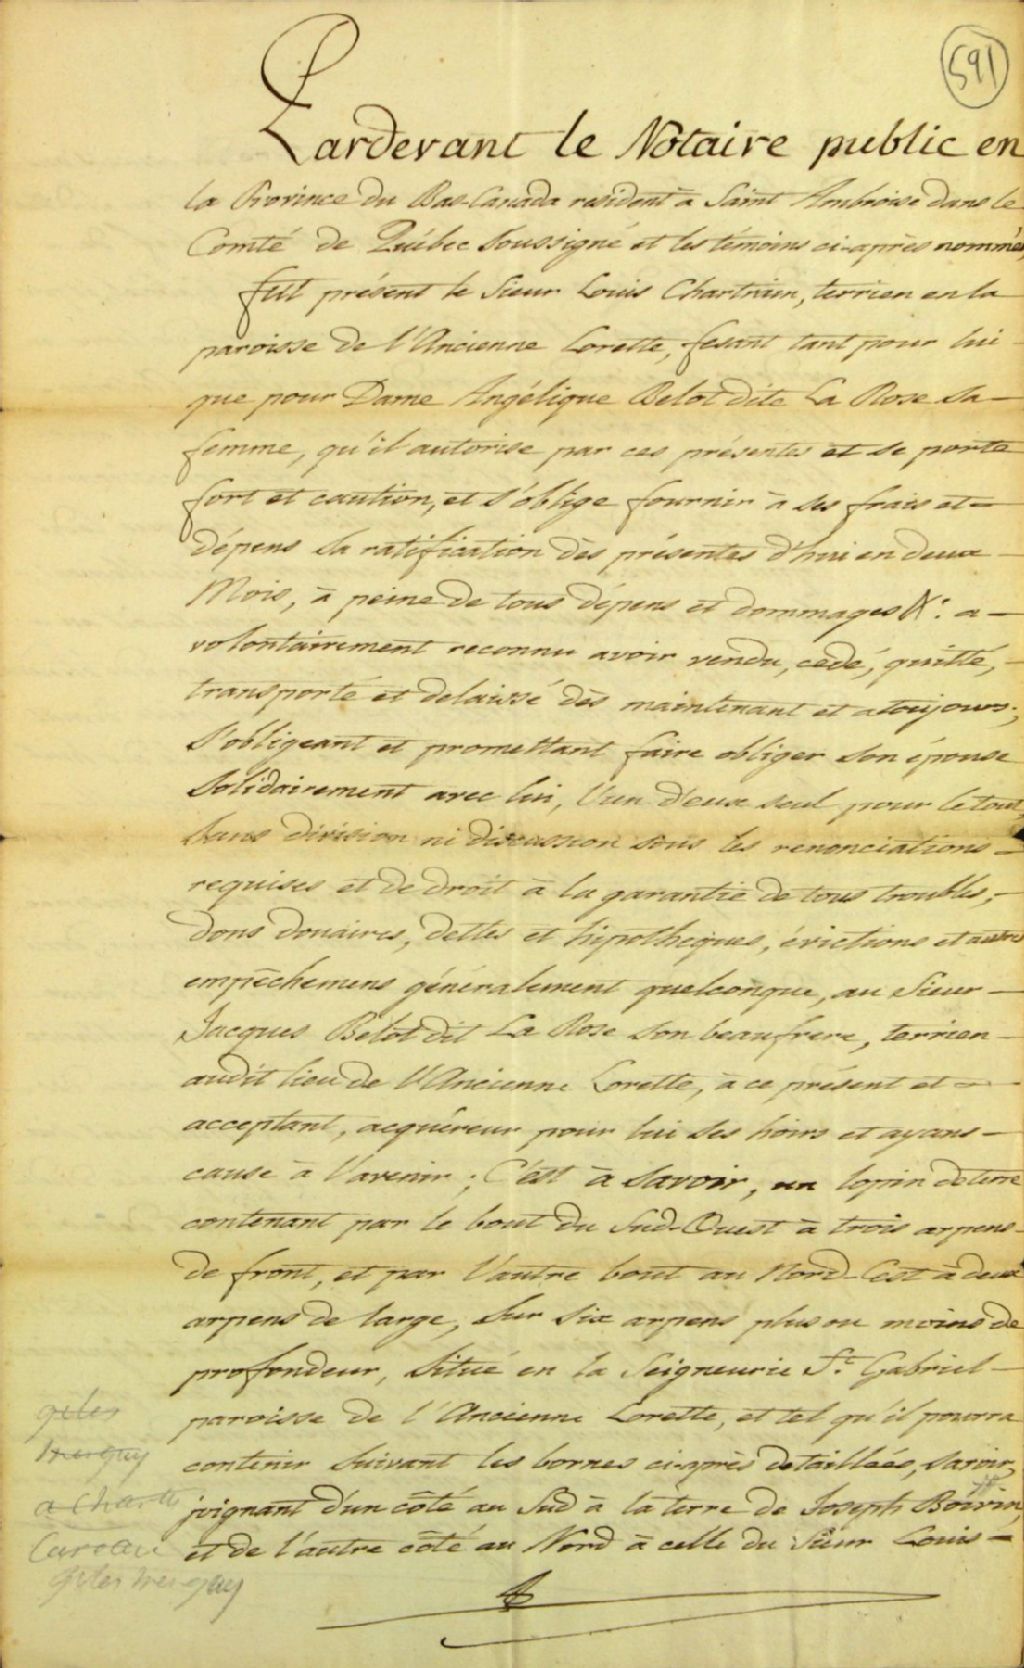 591
Pardevant le Notaire public en
la Province du Bas-Canada résident à Saint Ambroise dans le
Comté de Québec soussigné et les témoins ci-après nommés,
fut présent le Sieur Louis Chartrain, terrien en la
paroisse de l'Ancienne Lorette, fesant tant pour lui —
que pour Dame Angélique Belot dite La Rose sa —
femme, qu'il autorise par ces présentes et se porte
fort et caution, et s'oblige fournir à ses frais et =
dépens sa ratification dès présentes d'hui en deux —
Mois, à peine de tous dépens et dommages &c. a —
volontairement reconnu avoir vendu, cedé, quitté, —
transporté et delaissé dès maintenant et a toujours;
s'obligeant et promettant faire obliger son épouse
solidairement avec lui, l'un d'eux seul pour le tout,
sans division ni discussion sous les renonciations =
requises et de droit à la garantie de tous troubles, —
dons douaires, dettes et hipotheques, évictions et autres
empêchemens généralement quelconque, au Sieur —
Jacques Belot dit La Rose son beaufrere, terrien —
audit lieu de l'Ancienne Lorette, à ce présent et —
acceptant, acquéreur pour lui ses hoirs et ayans —
cause à l'avenir; C'est à savoir, un lopin de terre
contenant par le bout du Sud-Ouest à trois arpens —
de front, et par l'autre bout au Nord-Est à deux
arpens de large, sur six arpens plus ou moins de
profondeur, situé en la Seigneurie St. Gabriel —
paroisse de l'Ancienne Lorette, et tel qu'il pourra
contenir suivant les bornes ci-après detaillées, savoir,
joignant d'un côté au Sud à la terre de Joseph Boivin,
et de l'autre côté au Nord à celle du Sieur Louis =